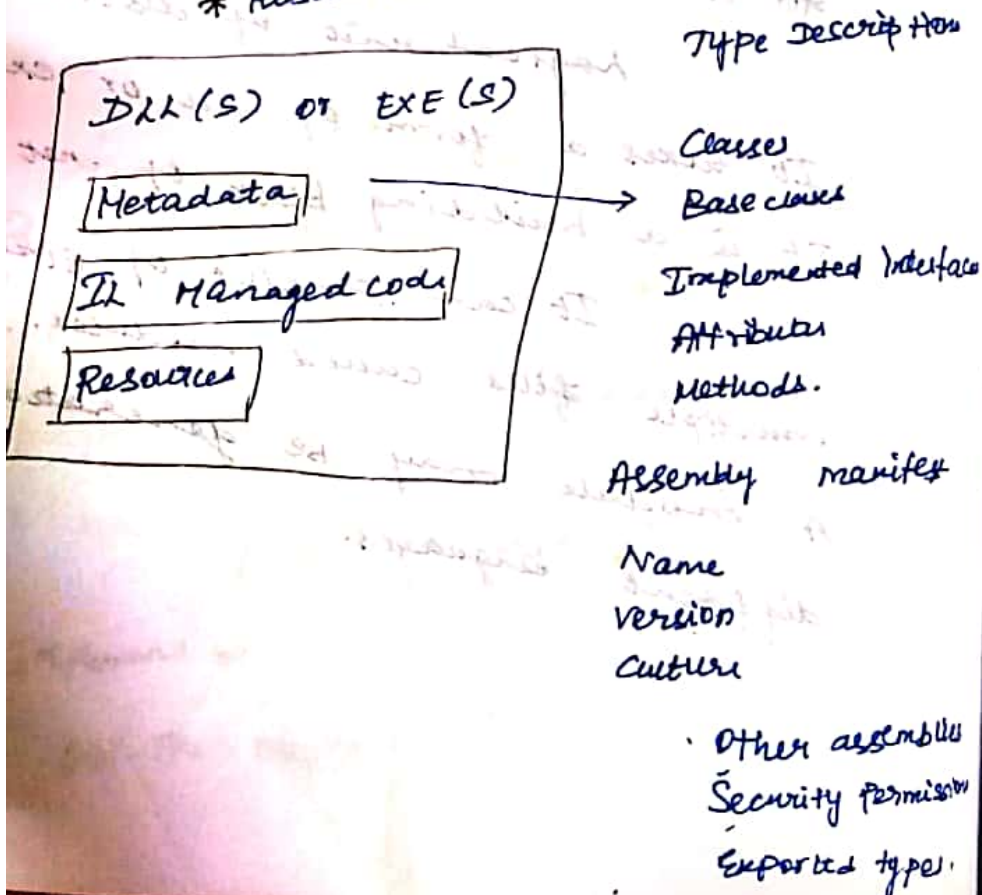 Type Description
DLL(S) or EXE(S)
Metadata
IL Managed code
Resources
Classes
Base classes
Implemented Interface
Attributes
Methods.
Assembly manifest
Name
version
Culture
Other assemblies
Security Permission
Exported types.